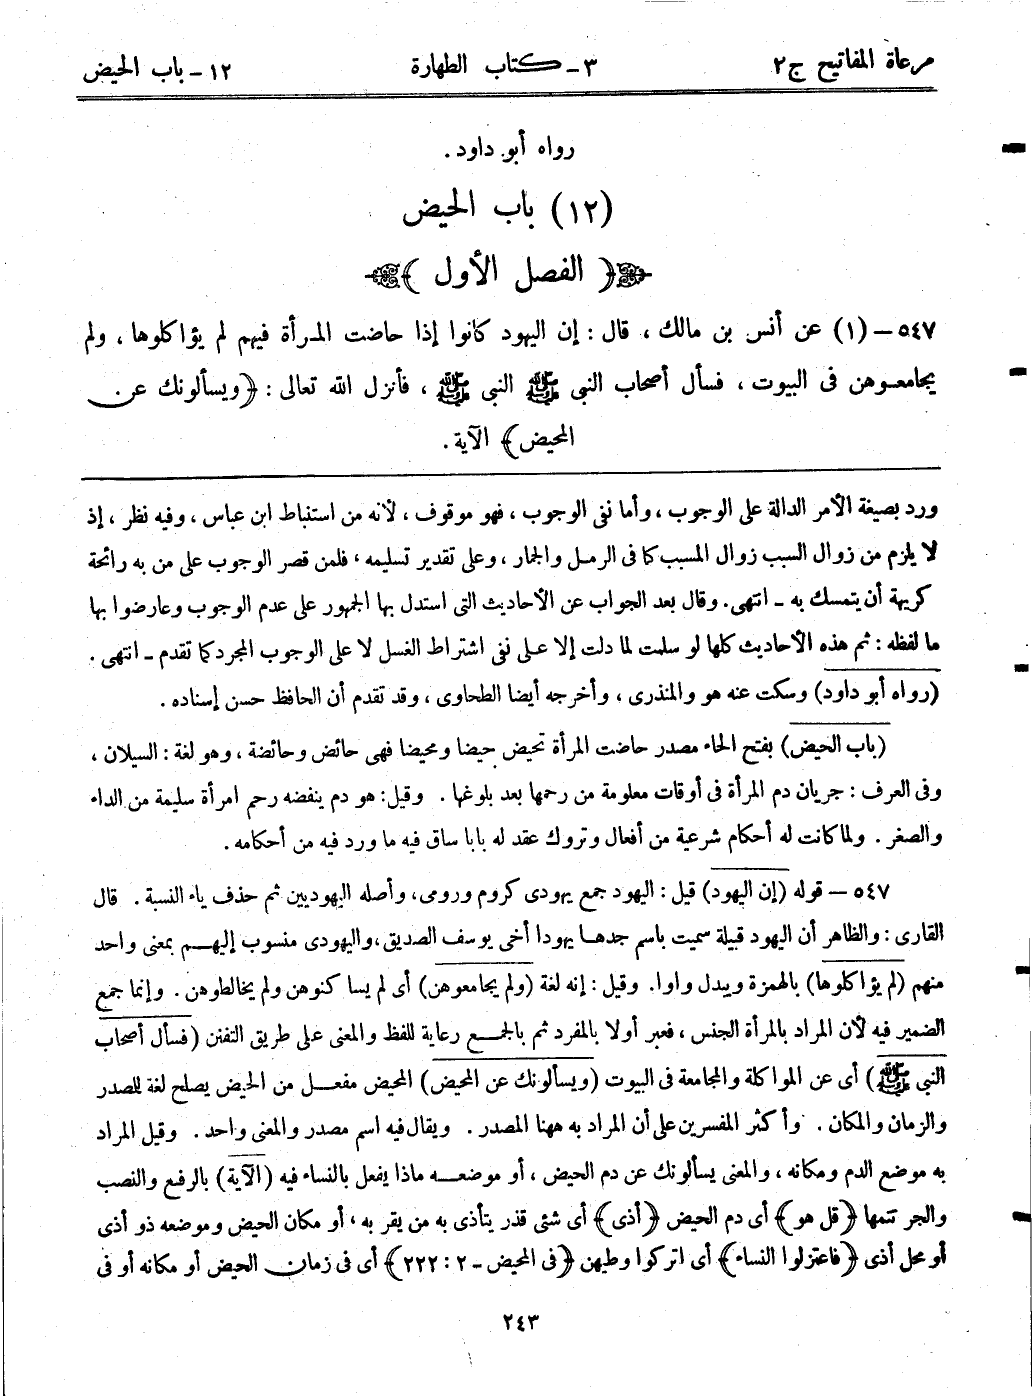 مرعاة المفاتيح ج٢ ٣ - كتاب الطهارة ١٢ - باب الحيض
رواه أبو داود .
(١٢) باب الحيض
﴿ الفصل الأول ﴾
٥٤٧ - (١) عن أنس بن مالك ، قال : إن اليهود كانوا إذا حاضت المرأة فيهم لم يؤاكلوها ، ولم
يجامعوهن فى البيوت ، فسأل أصحاب النبى ﷺ النبى ﷺ ، فأنزل الله تعالى : ﴿ ويسألونك عن
المحيض ﴾ الآية .
ورد بصيغة الأمر الدالة على الوجوب ، وأما نفى الوجوب ، فهو موقوف ، لأنه من استنباط ابن عباس ، وفيه نظر ، إذ
لا يلزم من زوال السبب زوال المسبب كما فى الرمل والجمار ، وعلى تقدير تسليمه ، فلمن قصر الوجوب على من به رائحة
كريهة أن يتمسك به - انتهى. وقال بعد الجواب عن الأحاديث التى استدل بها الجمهور على عدم الوجوب وعارضوا بها
ما لفظه : ثم هذه الأحاديث كلها لو سلمت لما دلت إلا على نفى اشتراط الغسل لا على الوجوب المجرد كما تقدم - انتهى .
(رواه أبو داود) وسكت عنه هو والمنذرى ، وأخرجه أيضا الطحاوى ، وقد تقدم أن الحافظ حسن إسناده .
(باب الحيض) بفتح الحاء مصدر حاضت المرأة تحيض حيضا ومحيضا فهى حائض وحائضة ، وهو لغة : السيلان ،
وفى العرف : جريان دم المرأة فى أوقات معلومة من رحمها بعد بلوغها . وقيل: هو دم ينفضه رحم امرأة سليمة من الداء
والصغر . ولما كانت له أحكام شرعية من أفعال وتروك عقد له بابا ساق فيه ما ورد فيه من أحكامه .
٥٤٧ - قوله (إن اليهود) قيل : اليهود جمع يهودى كروم ورومى، وأصله اليهوديين ثم حذف ياء النسبة . قال
القارى : والظاهر أن اليهود قبيلة سميت باسم جدها يهودا أخى يوسف الصديق، واليهودى منسوب إليهم بمعنى واحد
منهم (لم يؤاكلوها) بالهمزة ويبدل واوا. وقيل : إنه لغة (ولم يجامعوهن) أى لم يساكنوهن ولم يخالطوهن . وإنما جمع
الضمير فيه لأن المراد بالمرأة الجنس ، فعبر أولا بالمفرد ثم بالجمع رعاية للفظ والمعنى على طريق التفنن (فسأل أصحاب
النبى ﷺ) أى عن المواكلة والمجامعة فى البيوت (ويسألونك عن المحيض) المحيض مفعل من الحيض يصلح لغة للصدر
والزمان والمكان . وأكثر المفسرين على أن المراد به ههنا المصدر . ويقال فيه اسم مصدر والمعنى واحد . وقيل المراد
به موضع الدم ومكانه ، والمعنى يسألونك عن دم الحيض ، أو موضعه ماذا يفعل بالنساء فيه (الآية) بالرفع والنصب
والجر تتمها ﴿ قل هو ﴾ أى دم الحيض ﴿ أذى ﴾ أى شئى قذر يتأذى به من يقر به ، أو مكان الحيض وموضعه ذو أذى
أو محل أذى ﴿ فاعتزلوا النساء ﴾ أى اتركوا وطيهن ﴿ فى المحيض - ٢ : ٢٢٢ ﴾ أى فى زمان الحيض أو مكانه أو فى
٢٤٣